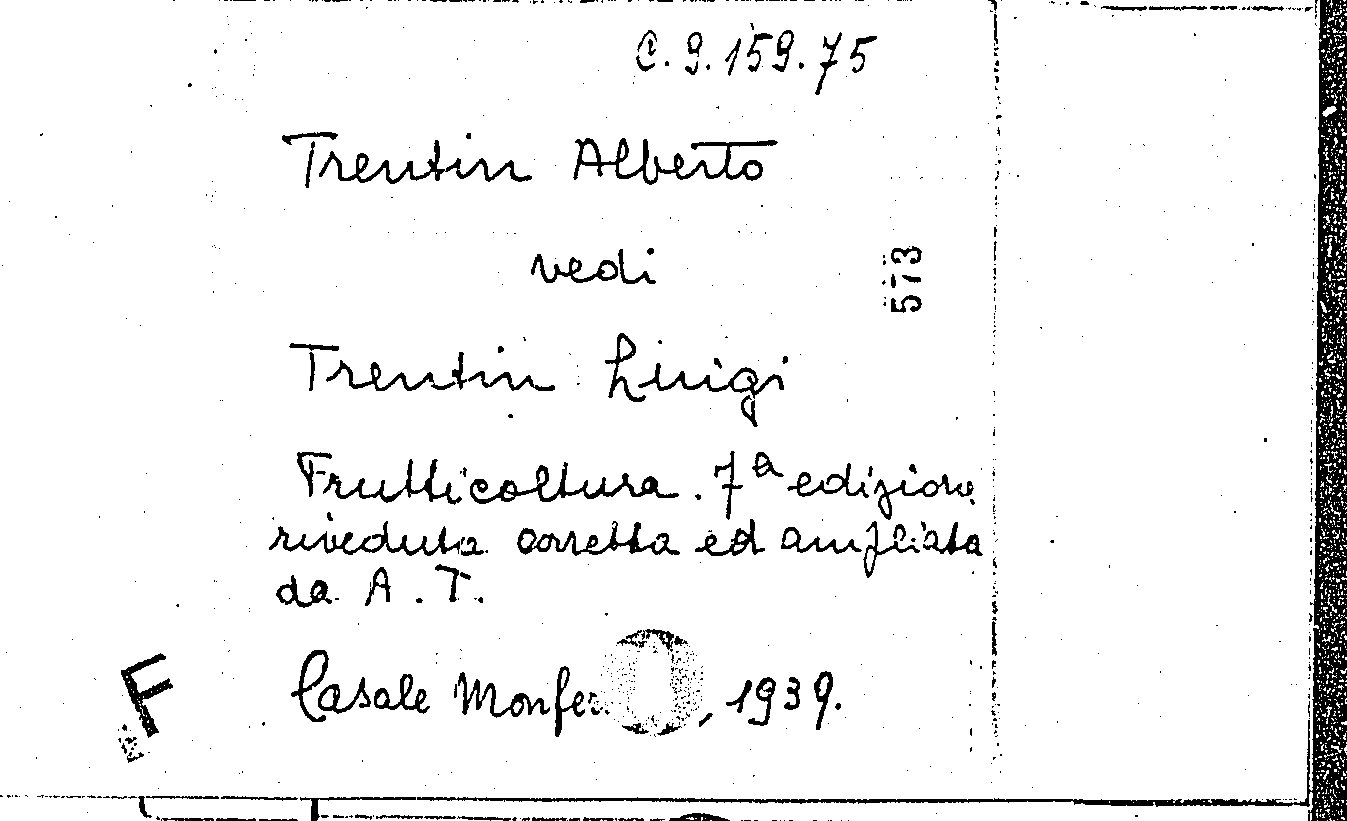 C.9.159.75
Trentin Alberto
vedi
573
Trentin Luigi
Frutticoltura. 7ª edizione
riveduta corretta ed ampliata
da A.T.
Casale , 1939.
F